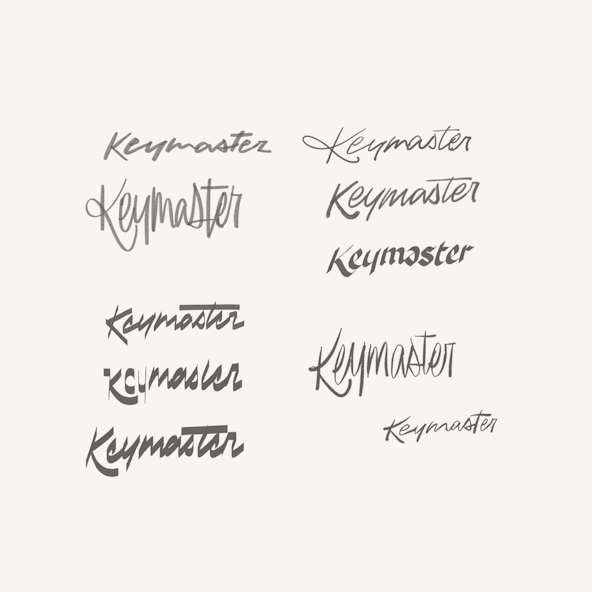 Keymaster
Keymaster
Keymaster
Keymaster
Keymaster
Keymaster
Keymaster
Keymaster
Keymaster
Keymaster